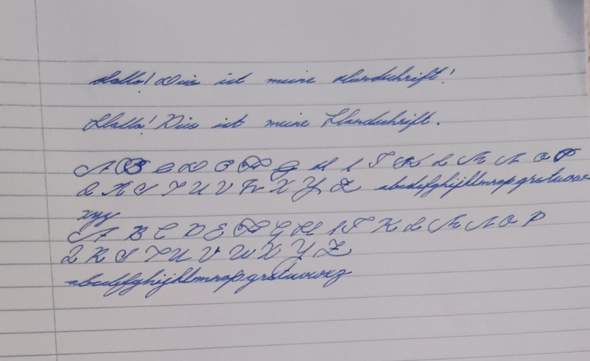 Hallo! Dies ist meine Handschrift!
Hallo! Dies ist meine Handschrift.
A B C D E F G H I J K L M N O P
Q R S T U V W X Y Z abcdefghijklmnopqrstuvw
xyz
A B C D E F G H I J K L M N O P
Q R S T U V W X Y Z
abcdefghijklmnopqrstuvwxyz